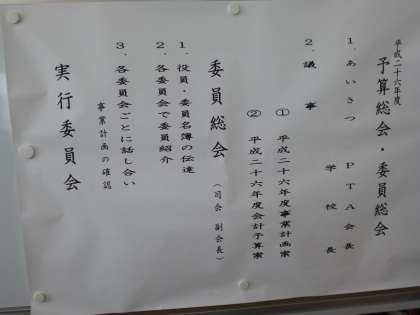 平成二十六年度
予算総会・委員総会
１．あいさつ　ＰＴＡ会長
学校長
２．議事
①　平成二十六年度事業計画案
②　平成二十六年度会計予算案
委員総会
（司会　副会長）
１．役員・委員名簿の伝達
２．各委員会で委員紹介
３．各委員会ごとに話し合い
事業計画の確認
実行委員会